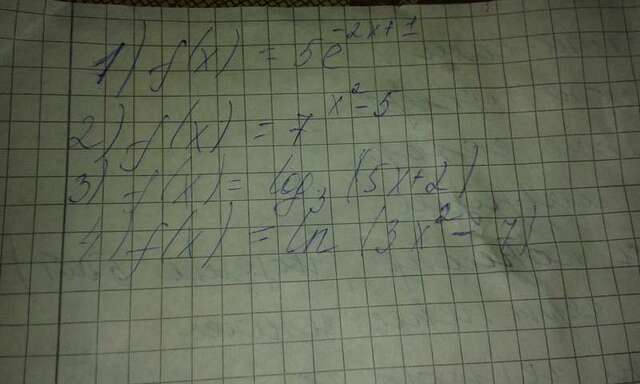 1) f(x) = 5e^{-2x+1}
2) f(x) = 7^{x^2-5}
3) f(x) = log_3 (5x+2)
4) f(x) = ln (3x^2-7)